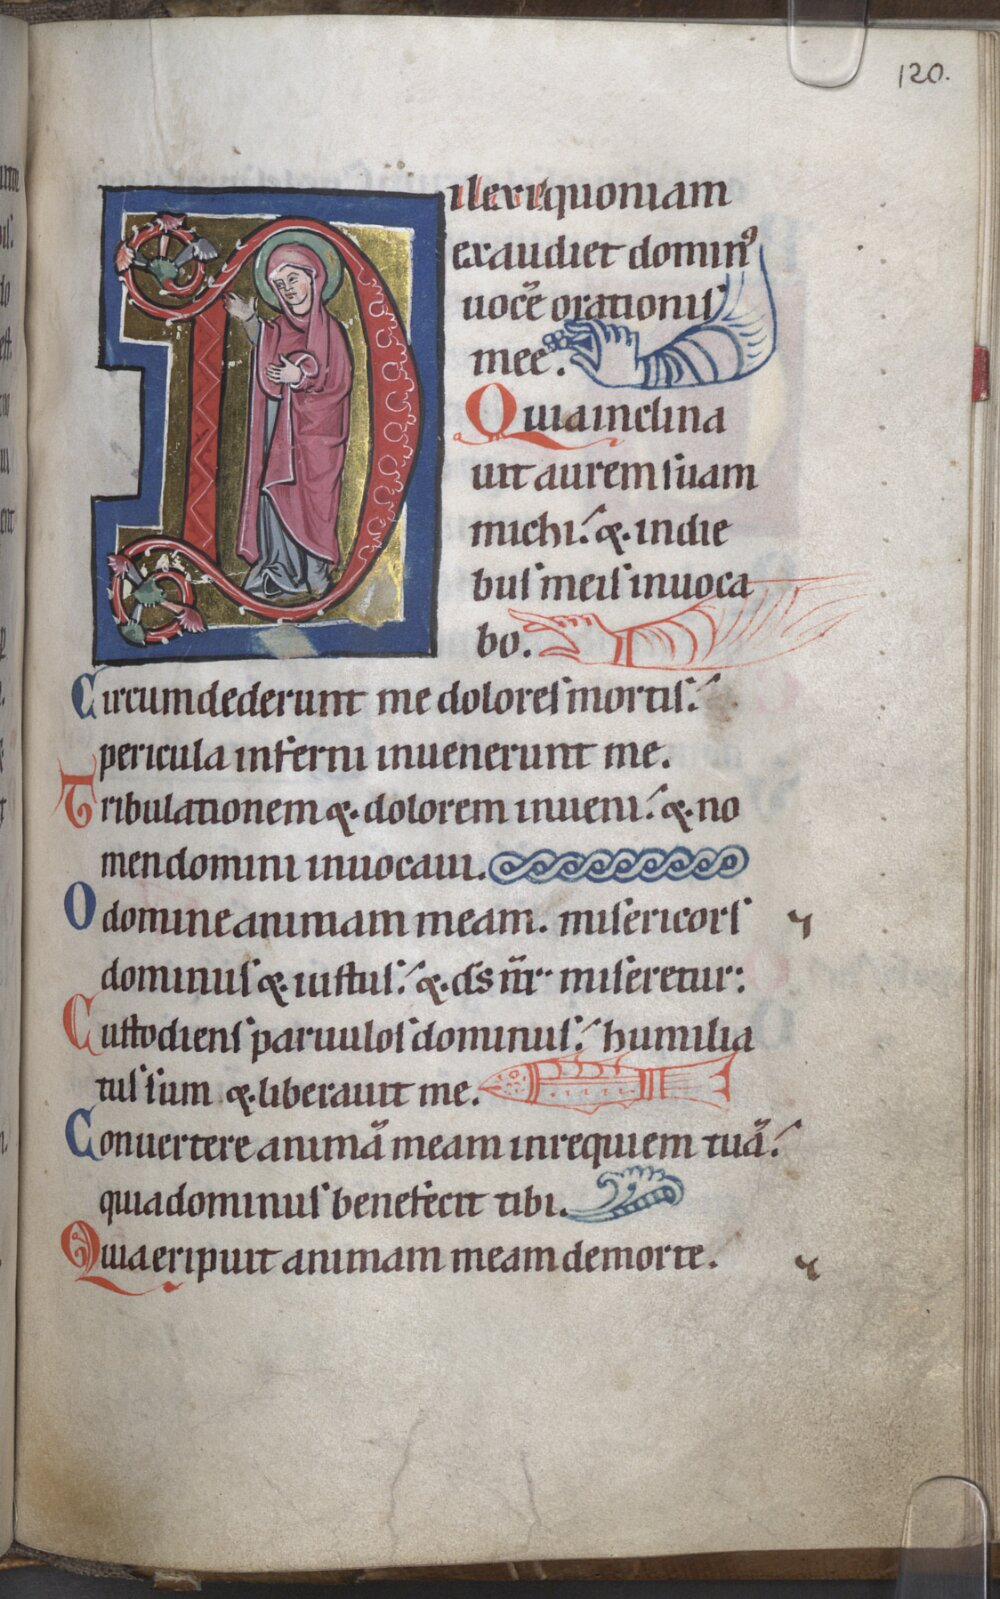 120.
Dilexi quoniam
exaudiet dominꝰ
uocē orationis
mee.
Quia inclina
uit aurem suam
michi: & in die
bus meis inuoca
bo.
Circumdederunt me dolores mortis:
pericula inferni inuenerunt me.
Tribulationem & dolorem inueni: & no
men domini inuocaui.
O domine animam meam. misericors
dominus & iustus: & ds nr̄ miseretur:
Custodiens paruulos dominus: humilia
tus sum & liberauit me.
Conuertere animā meam in requiem tuā:
quia dominus benefecit tibi.
Quia eripuit animam meam de morte.